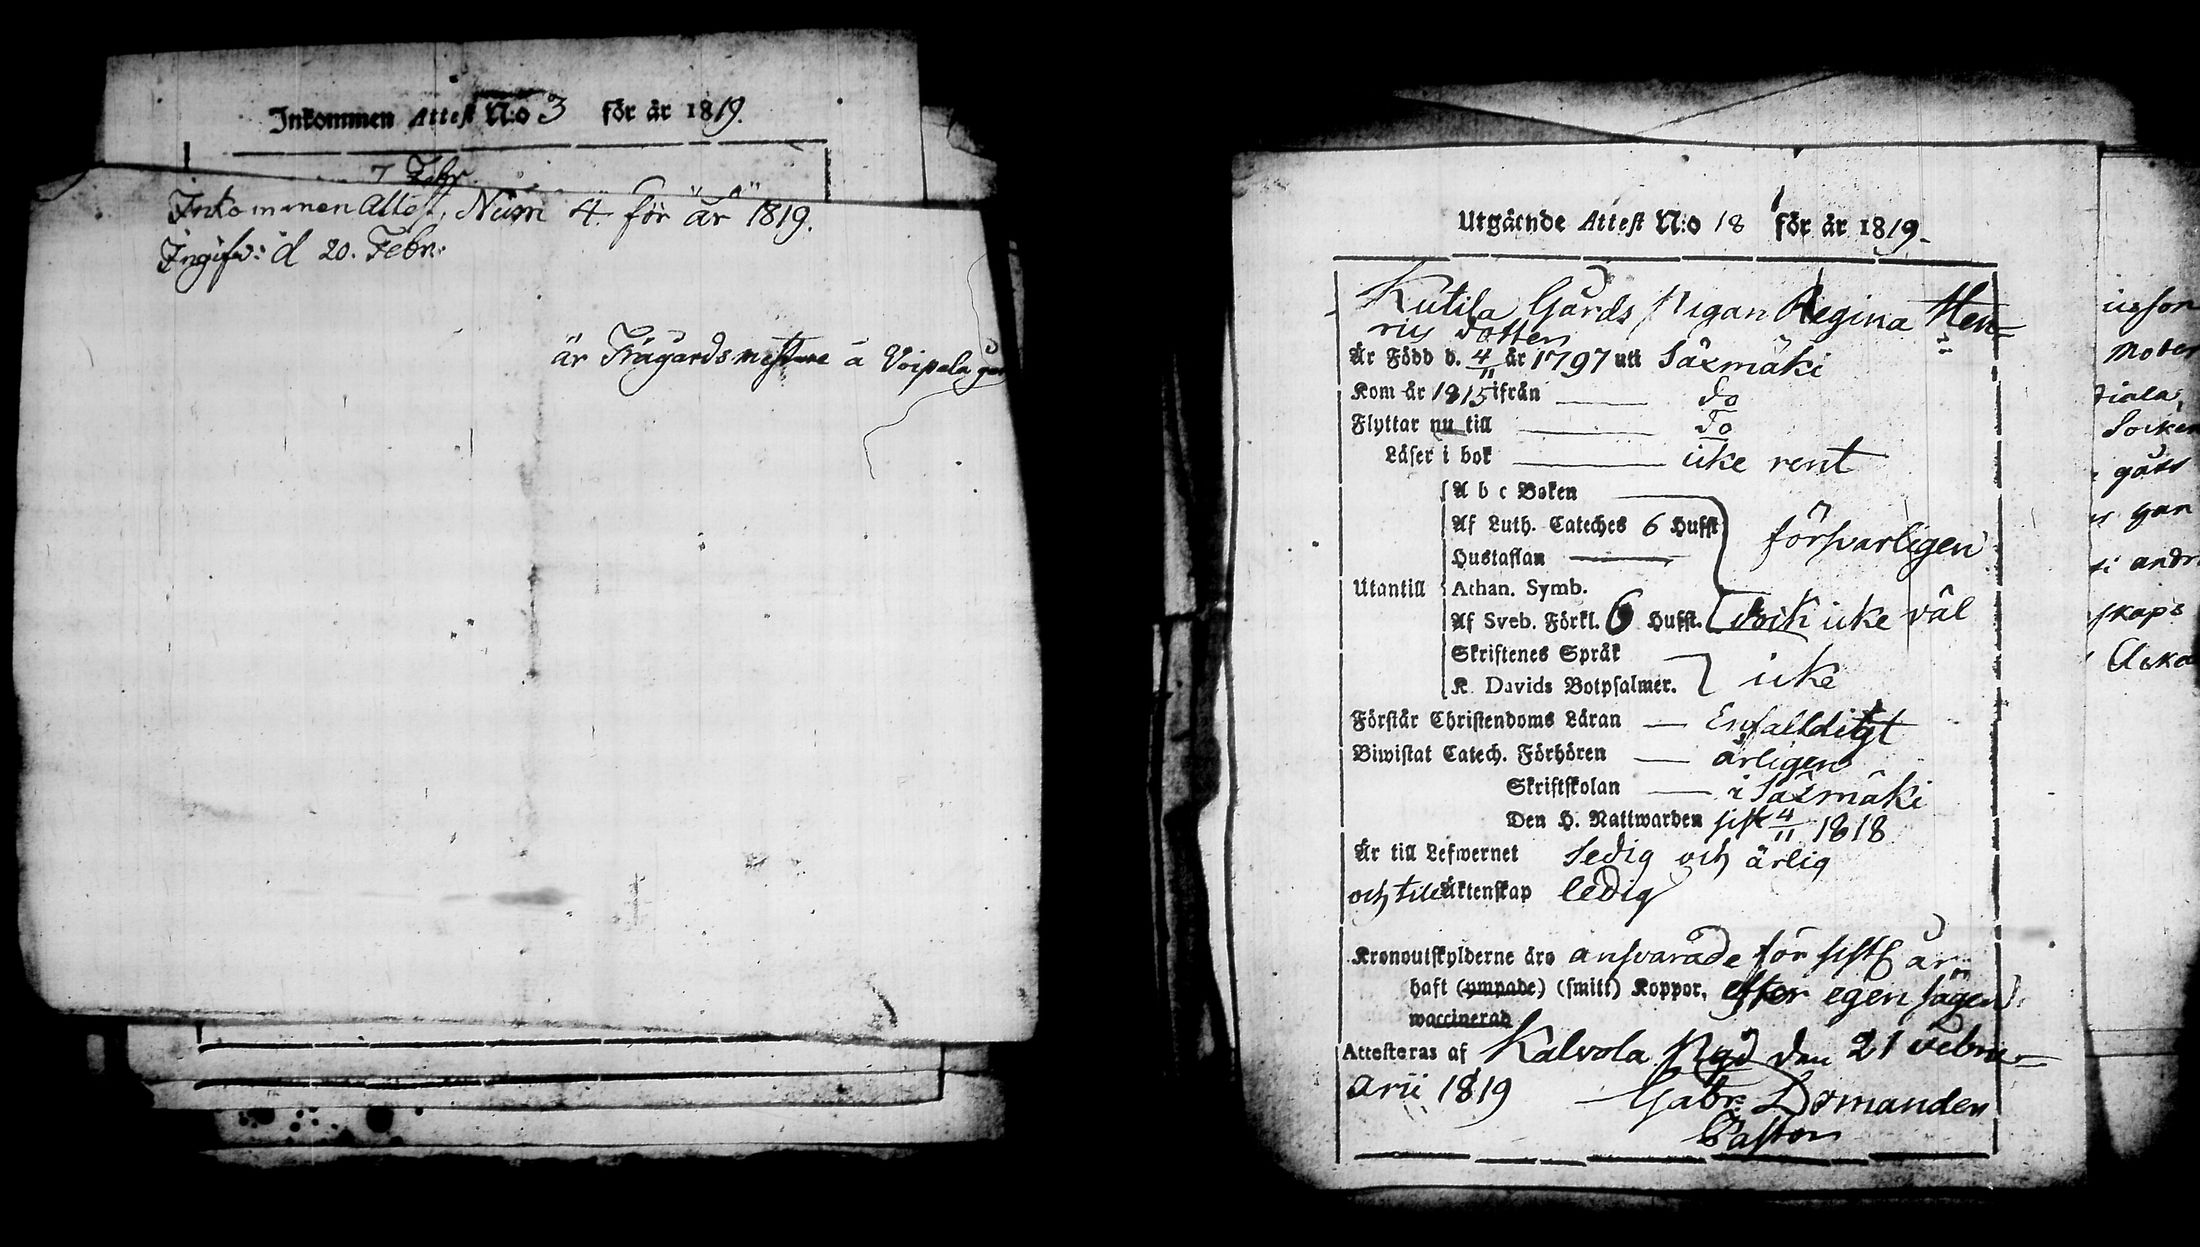 Inkommen Attest N:o 3 för år 1819.
7 Febr.
Inkommen Attest, Num 4. för år 1819.
Ingifv: d 20. Febr:
är Trägårdsmestare å Voipala går
Utgående Attest N:o 18 för år 1819.
Kutila Gårds Pigan Regina Hen-
rics dotter
Är Född d. 4/11 år 1797 uti Säxmäki
Kom år 1815 ifrån do
Flyttar nu till do
Läser i bok icke rent
A b c Boken
Af Luth. Cateches 6 Hufst. försvarligen
Hustaflan
Utantill Athan. Symb.
Af Sveb. Förkl. 6 Hufst. dock icke väl
Skriftenes Språk
K. Davids Botpsalmer. icke
Förstår Christendoms Läran Enfalldigt
Biwistat Catech. Förhören årligen
Skriftskolan i Säxmäki
Den H. Nattwarden sist 4/11 1818
Är till Lefwernet sedig och ärlig
och till Äktenskap ledig
Kronoutskylderne äro ansvarade för sistl år
haft (ympade) (smitt) Koppor, efter egen sägen
waccinerad
Attesteras af Kalvola Pgd den 21 Febru-
arii 1819 Gabr. Domander
Pastor
Moder
Socken
gått
andr
skaps